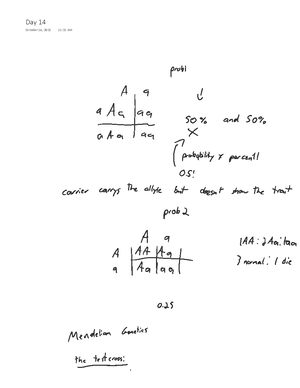 Day 14
prob1
A a
a Aa aa
a Aa aa
50% and 50%
probability ≠ percent!
0.5!
carrier carrys the allele but doesn't show the trait
prob 2
A a
A AA Aa
a Aa aa
1AA : 2Aa : 1aa
3 normal : 1 die
0.25
Mendelian Genetics
the testcross: